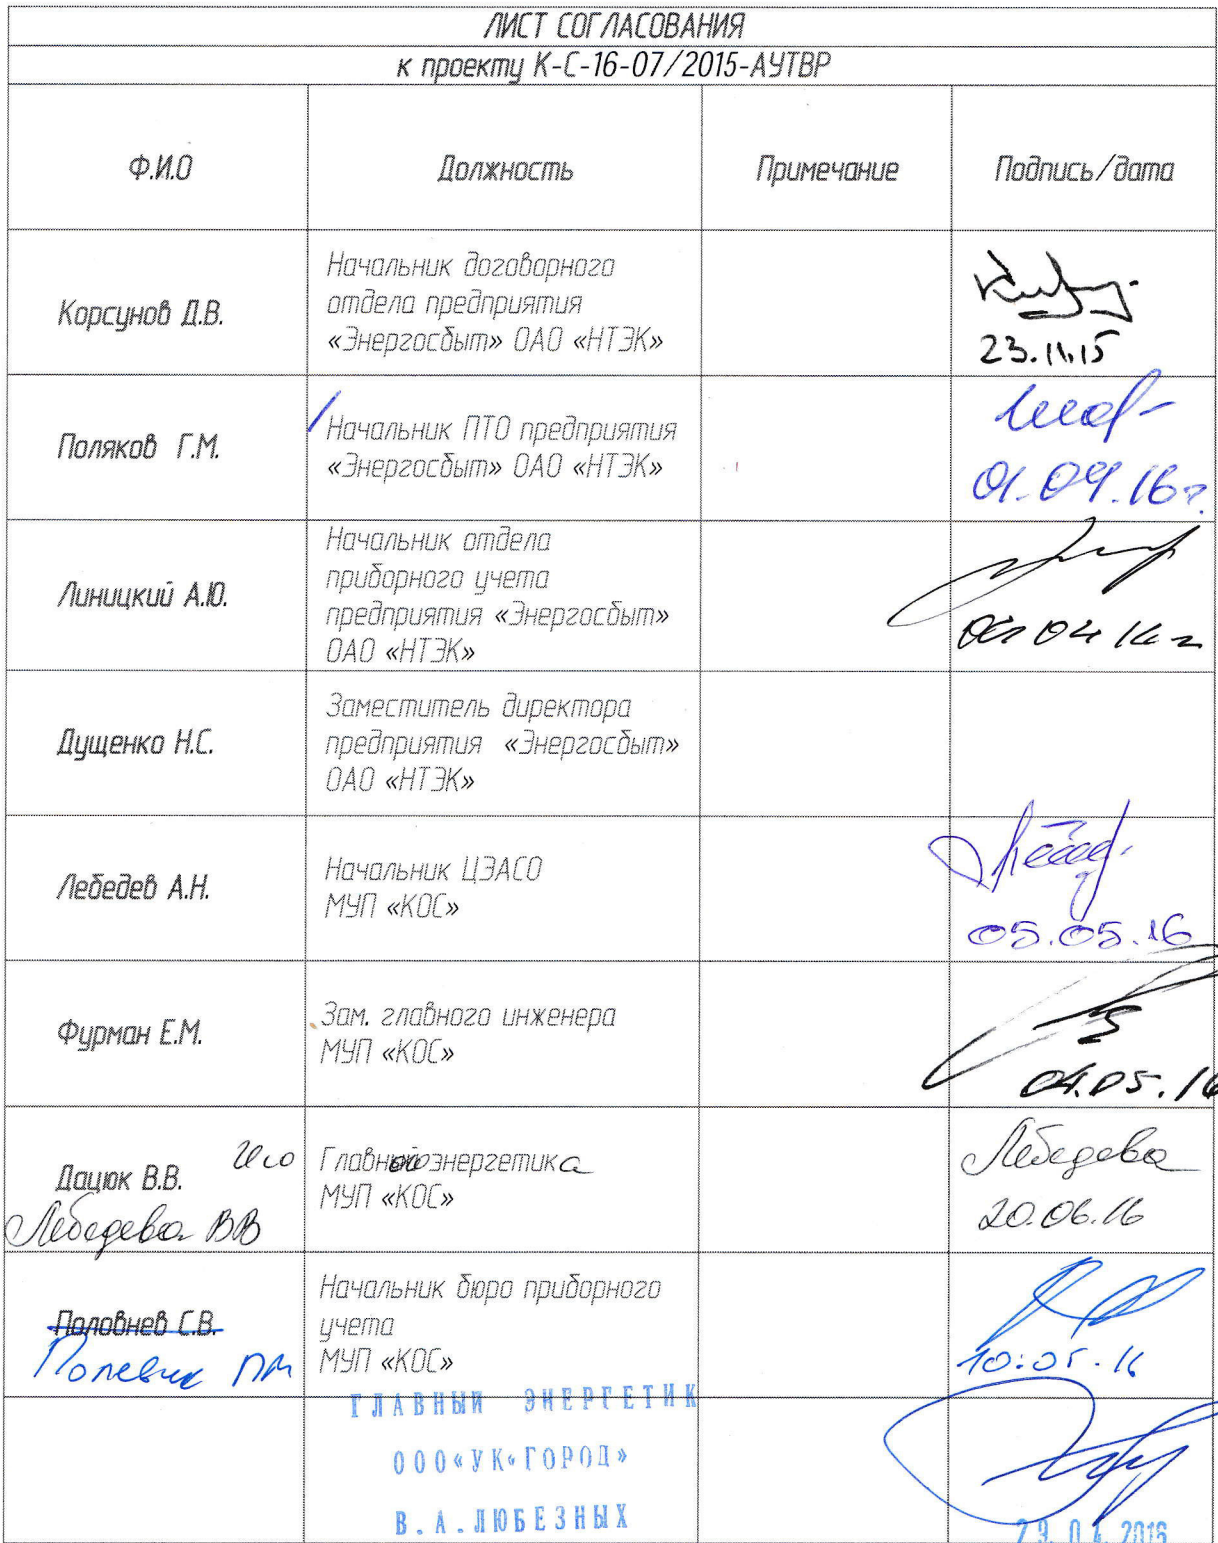 ЛИСТ СОГЛАСОВАНИЯ
к проекту К-С-16-07/2015-АУТВР
Ф.И.О
Должность
Примечание
Подпись/дата
Корсунов Д.В.
Начальник договорного
отдела предприятия
«Энергосбыт» ОАО «НТЭК»
23.11.15
Поляков Г.М.
Начальник ПТО предприятия
«Энергосбыт» ОАО «НТЭК»
Линицкий А.Ю.
Начальник отдела
приборного учета
предприятия «Энергосбыт»
ОАО «НТЭК»
Дущенко Н.С.
Заместитель директора
предприятия «Энергосбыт»
ОАО «НТЭК»
Лебедев А.Н.
Начальник ЦЭАСО
МУП «КОС»
05.05.16
Фурман Е.М.
Зам. главного инженера
МУП «КОС»
04.05.16
Дацюк В.В.
Лебедева ВВ
И.о
Главного энергетика
МУП «КОС»
Лебедева
20.06.16
Половнев С.В.
Начальник бюро приборного
учета
МУП «КОС»
10.05.16
ГЛАВНЫЙ ЭНЕРГЕТИК
ООО«УК«ГОРОД»
В.А.ЛЮБЕЗНЫХ
29.04.2016